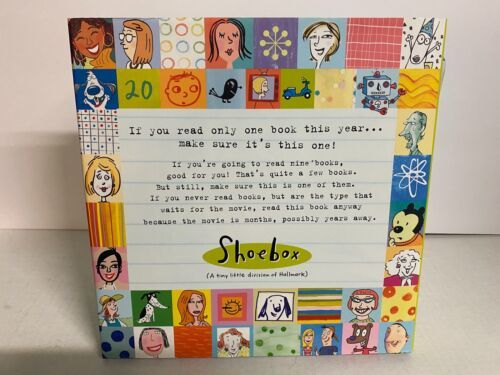 20
If you read only one book this year...
make sure it's this one!
If you're going to read nine books,
good for you! That's quite a few books.
But still, make sure this is one of them.
If you never read books, but are the type that
waits for the movie, read this book anyway
because the movie is months, possibly years away.
Shoebox
(A tiny little division of Hallmark)